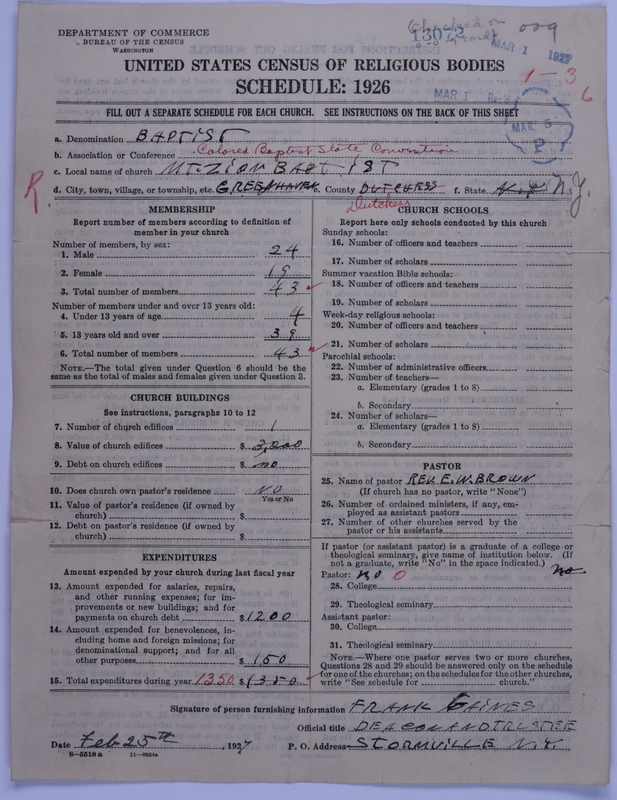 DEPARTMENT OF COMMERCE
BUREAU OF THE CENSUS
WASHINGTON
130-2
009
MAR 1 1927
UNITED STATES CENSUS OF RELIGIOUS BODIES
SCHEDULE: 1926
1-3
6
MAR 1
MAR 5
P
FILL OUT A SEPARATE SCHEDULE FOR EACH CHURCH. SEE INSTRUCTIONS ON THE BACK OF THIS SHEET
a. Denomination BAPTIST
b. Association or Conference Colored Baptist State Convention
c. Local name of church MT-ZION BAPTIST
R.
d. City, town, village, or township, etc. GREENHAVEN e. County DUTCHESS f. State N.Y. N.Y.
Dutchess
MEMBERSHIP
Report number of members according to definition of
member in your church
Number of members, by sex:
1. Male 24
2. Female 19
3. Total number of members 43
Number of members under and over 13 years old:
4. Under 13 years of age 4
5. 13 years old and over 39
6. Total number of members 43
NOTE.—The total given under Question 6 should be the
same as the total of males and females given under Question 3.
CHURCH BUILDINGS
See instructions, paragraphs 10 to 12
7. Number of church edifices 1
8. Value of church edifices $ 3,000
9. Debt on church edifices $ no
10. Does church own pastor's residence NO
Yes or No
11. Value of pastor's residence (if owned by
church) $
12. Debt on pastor's residence (if owned by
church) $
EXPENDITURES
Amount expended by your church during last fiscal year
13. Amount expended for salaries, repairs,
and other running expenses; for im-
provements or new buildings; and for
payments on church debt $ 1200
14. Amount expended for benevolences, in-
cluding home and foreign missions; for
denominational support; and for all
other purposes $ 150
15. Total expenditures during year 1350 $ 1350
CHURCH SCHOOLS
Report here only schools conducted by this church
Sunday schools:
16. Number of officers and teachers
17. Number of scholars
Summer vacation Bible schools:
18. Number of officers and teachers
19. Number of scholars
Week-day religious schools:
20. Number of officers and teachers
21. Number of scholars
Parochial schools:
22. Number of administrative officers
23. Number of teachers—
a. Elementary (grades 1 to 8)
b. Secondary
24. Number of scholars—
a. Elementary (grades 1 to 8)
b. Secondary
PASTOR
25. Name of pastor REV. E. W. BROWN
(If church has no pastor, write "None")
26. Number of ordained ministers, if any, em-
ployed as assistant pastors
27. Number of other churches served by the
pastor or his assistants
If pastor (or assistant pastor) is a graduate of a college or
theological seminary, give name of institution below. (If
not a graduate, write "No" in the space indicated.) No
Pastor: NO 0
28. College
29. Theological seminary
Assistant pastor:
30. College
31. Theological seminary
NOTE.—Where one pastor serves two or more churches,
Questions 28 and 29 should be answered only on the schedule
for one of the churches; on the schedules for the other churches,
write "See schedule for church."
Signature of person furnishing information FRANK GAINES
Official title DEACON AND TRUSTEE
Date Feb 25th, 1927 P. O. Address STORMVILLE N.Y.
8-5518 a 11-9664a